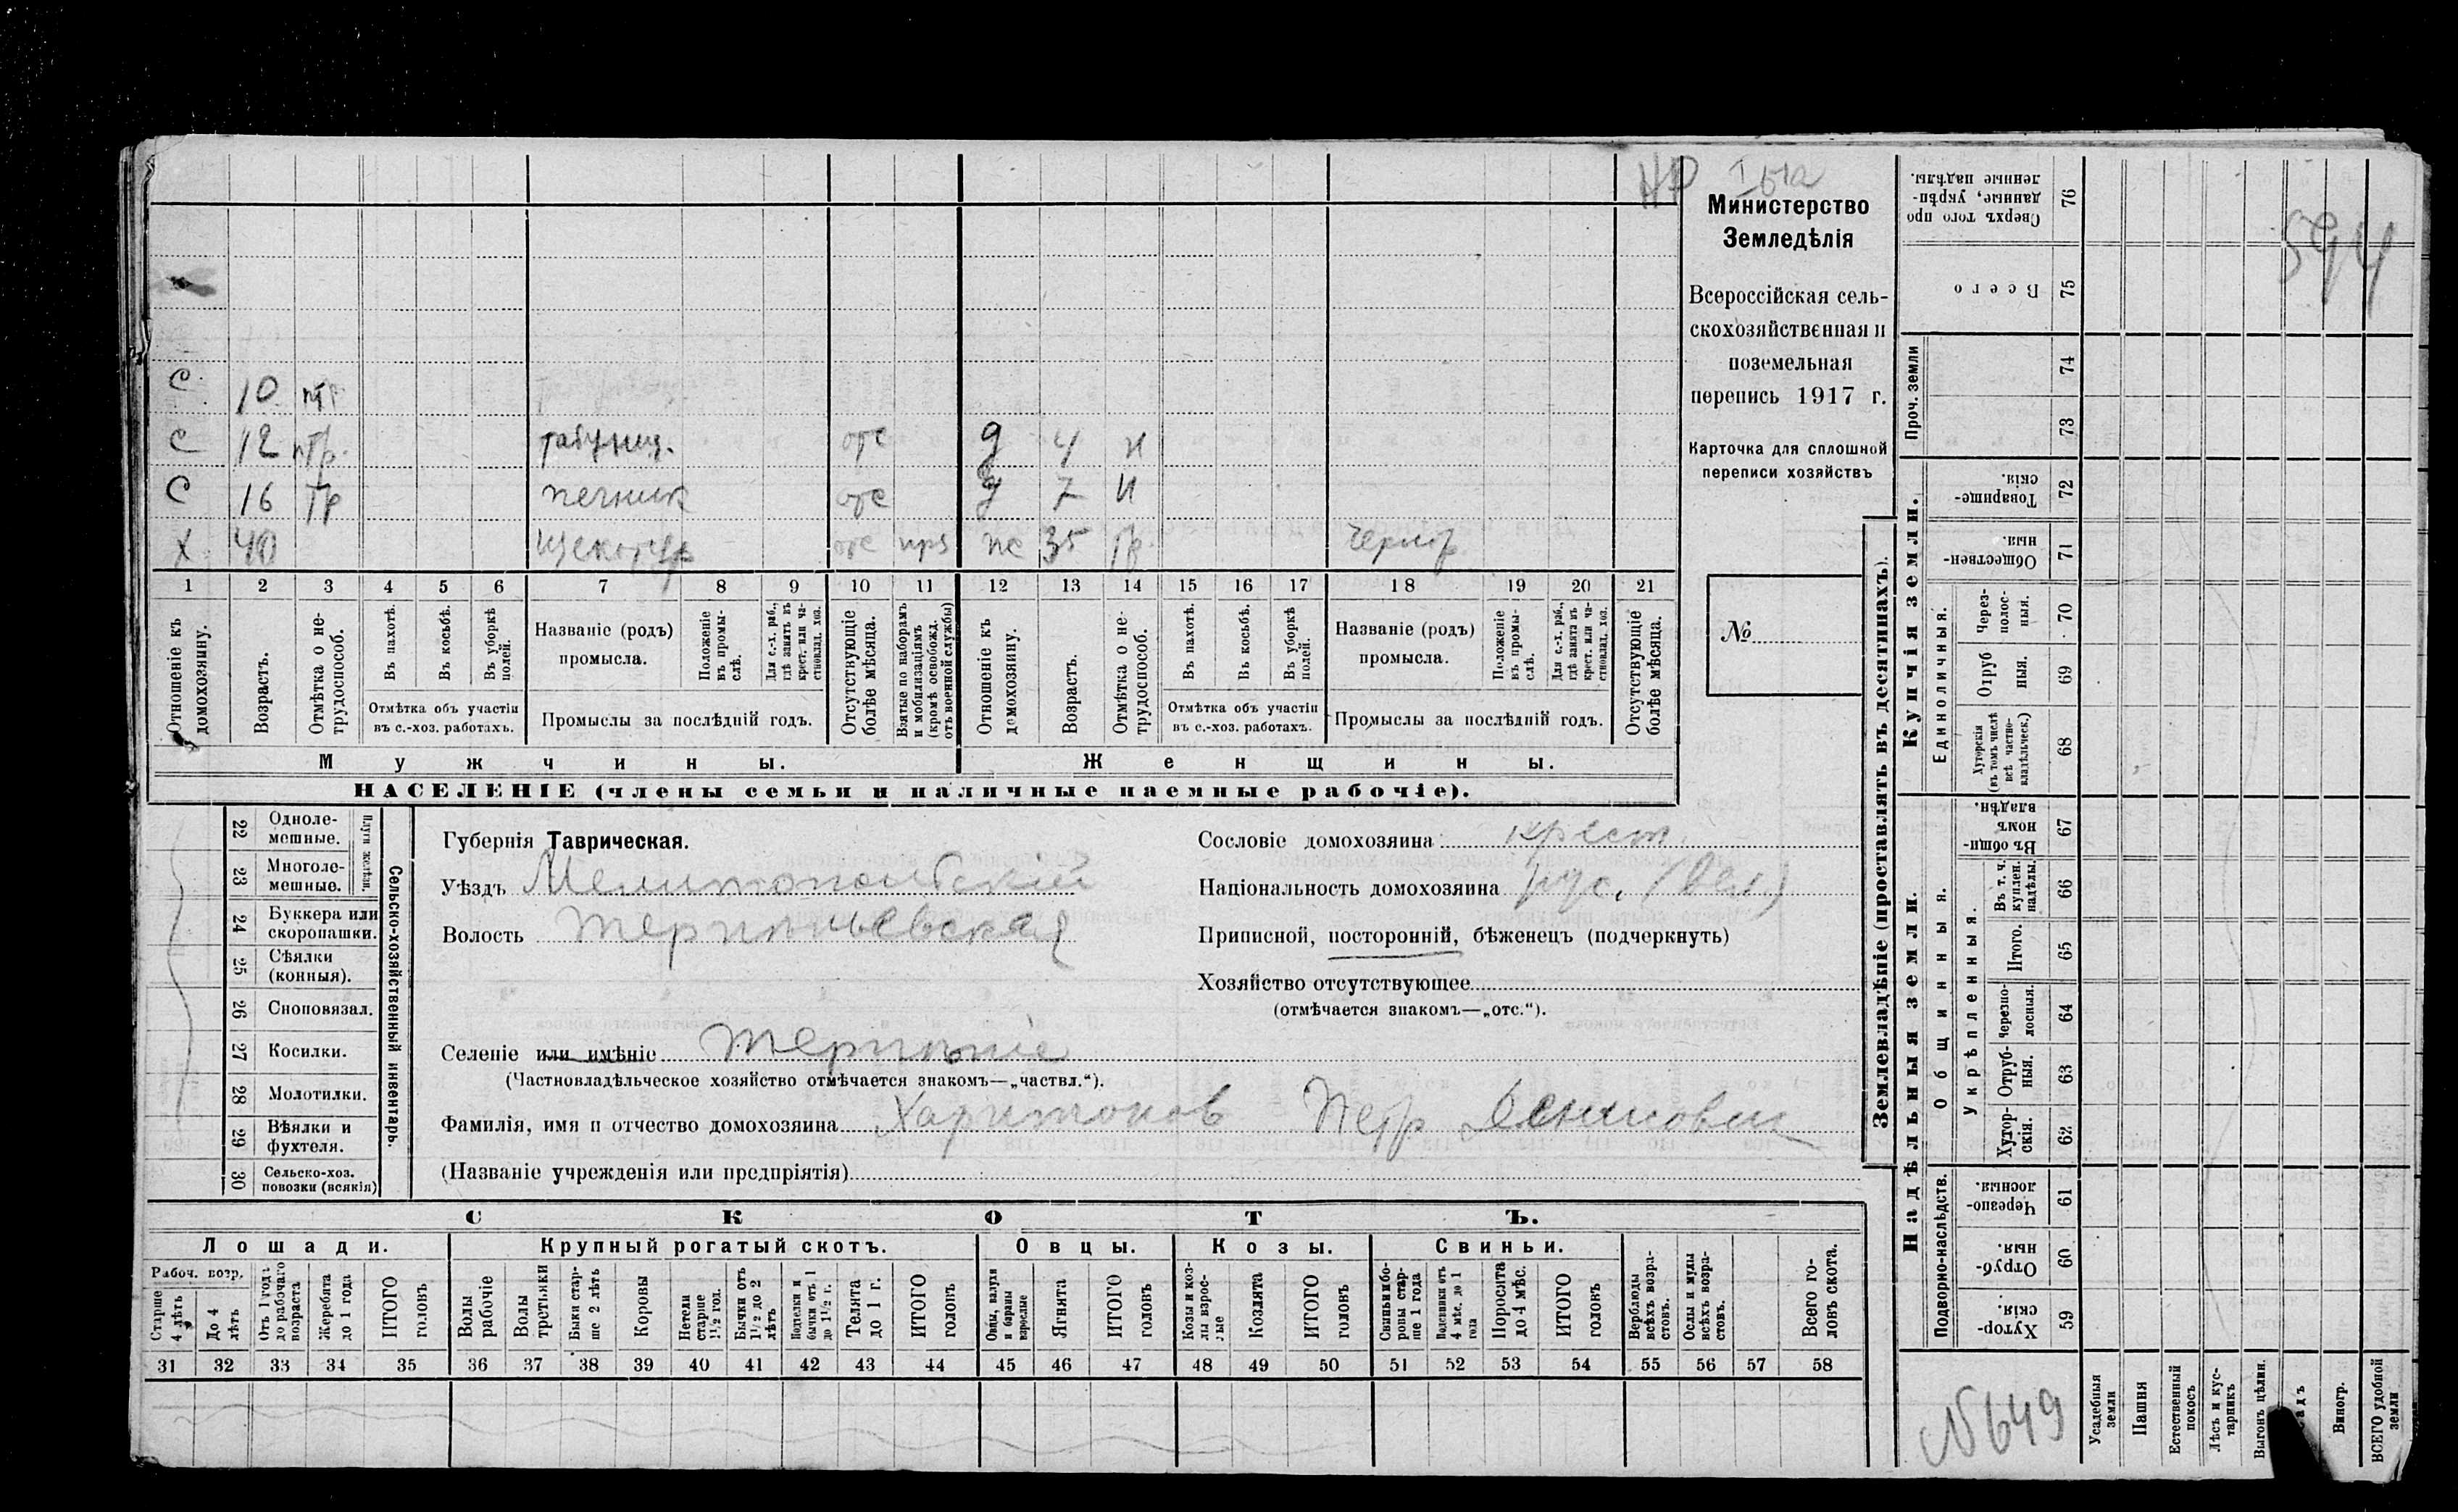 594
Министерство
Земледѣлія
Всероссійская сель-
скохозяйственная и
поземельная
перепись 1917 г.
Карточка для сплошной
переписи хозяйствъ
№
С 10 нтр
С 12 нтр. отс д 4 н
С 16 тр печник отс д 7 н
Х 40 щекотур отс 35 тр
1 2 3 4 5 6 7 8 9 10 11 12 13 14 15 16 17 18 19 20 21
Отношеніе къ домохозяину.
Возрастъ.
Отмѣтка о не-трудоспособ.
Въ пахотѣ.
Въ косьбѣ.
Въ уборкѣ полей.
Отмѣтка объ участіи въ с.-хоз. работахъ.
Названіе (родъ) промысла.
Положеніе въ промы-слѣ.
Для с.-х. раб., гдѣ занятъ въ крест. или ча-стновлад. хоз.
Промыслы за послѣдній годъ.
Отсутствующіе болѣе мѣсяца.
Взятые по наборамъ и мобилизаціямъ (кромѣ освобожд. отъ военной службы)
Отношеніе къ домохозяину.
Возрастъ.
Отмѣтка о не-трудоспособ.
Въ пахотѣ.
Въ косьбѣ.
Въ уборкѣ полей.
Отмѣтка объ участіи въ с.-хоз. работахъ.
Названіе (родъ) промысла.
Положеніе въ промы-слѣ.
Для с.-х. раб., гдѣ занята въ крест. или ча-стновлад. хоз.
Промыслы за послѣдній годъ.
Отсутствующіе болѣе мѣсяца.
Мужчины. Женщины.
НАСЕЛЕНІЕ (члены семьи и наличные наемные рабочіе).
22 Одноле-мешные.
23 Многоле-мешные.
Плуги желѣзн.
24 Буккера или скоропашки.
25 Сѣялки (конныя).
26 Сноповязал.
27 Косилки.
28 Молотилки.
29 Вѣялки и фухтеля.
30 Сельско-хоз. повозки (всякія)
Сельско-хозяйственный инвентарь.
Губернія Таврическая.
Уѣздъ Мелитопольскій
Волость Терпеньевская
Селеніе или имѣніе Терпеніе
(Частновладѣльческое хозяйство отмѣчается знакомъ—„частвл.“).
Фамилія, имя и отчество домохозяина Харитонов Петр Денисович
(Названіе учрежденія или предпріятія)
Сословіе домохозяина крест.
Національность домохозяина рус. (вел)
Приписной, посторонній, бѣженецъ (подчеркнуть)
Хозяйство отсутствующее
(отмѣчается знакомъ—„отс.“).
СКОТЪ.
Лошади. Крупный рогатый скотъ. Овцы. Козы. Свиньи.
Рабоч. возр.
Старше 4 лѣтъ
До 4 лѣтъ
Отъ 1 года до рабочаго возраста
Жеребята до 1 года
ИТОГО головъ
Волы рабочіе
Волы третьяки
Быки стар-ше 2 лѣтъ
Коровы
Нетели старше 1½ год.
Бычки отъ 1½ до 2 лѣтъ
Телята до 1 г.
ИТОГО головъ
Овцы, валухи и бараны взрослые
Ягнята
ИТОГО головъ
Козы и коз-лы взрос-лые
Козлята
ИТОГО головъ
Свиньи и бо-ровы стар-ше 1 года
Поросята до 4 мѣс.
ИТОГО головъ
Верблюды всѣхъ возра-стовъ.
Ослы и мулы всѣхъ возра-стовъ.
Всего го-ловъ скота.
31 32 33 34 35 36 37 38 39 40 41 42 43 44 45 46 47 48 49 50 51 52 53 54 55 56 57 58
Землевладѣніе (проставлять въ десятинахъ).
Купчія земли.
Надѣльныя земли.
Проч. земли
Единоличныя.
Общинныя.
Укрѣпленныя.
Подворно-наслѣдств.
Сверхъ того про данные, укрѣп-ленные надѣлы. 76
Всего 75
74
73
Товарище-скія. 72
Обществен-ныя. 71
Через-полос-ныя. 70
Отруб ныя. 69
Хуторскія (въ томъ числѣ всѣ частно-владѣльческ.) 68
Въ общи-номъ владѣн. 67
Въ т. ч. куплен. надѣлы. 66
Итого. 65
Черезпо-лосныя. 64
Отруб-ныя. 63
Хутор-скія. 62
Черезпо-лосныя. 61
Отруб-ныя. 60
Хутор-скія. 59
№ 649
Усадебныя земли
Пашня
Естественный покосъ
Лѣсъ и кус-тарникъ
Выгонъ цѣлин.
Виногр.
ВСЕГО удобной земли